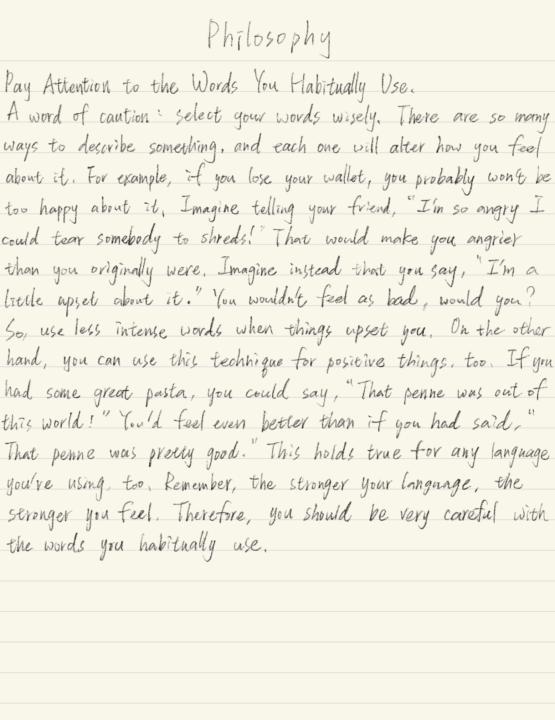 Philosophy
Pay Attention to the Words You Habitually Use.
A word of caution: select your words wisely. There are so many
ways to describe something, and each one will alter how you feel
about it. For example, if you lose your wallet, you probably won't be
too happy about it. Imagine telling your friend, "I'm so angry I
could tear somebody to shreds!" That would make you angrier
than you originally were. Imagine instead that you say, "I'm a
little upset about it." You wouldn't feel as bad, would you?
So, use less intense words when things upset you. On the other
hand, you can use this technique for positive things, too. If you
had some great pasta, you could say, "That penne was out of
this world!" You'd feel even better than if you had said, "
That penne was pretty good." This holds true for any language
you're using, too. Remember, the stronger your language, the
stronger you feel. Therefore, you should be very careful with
the words you habitually use.